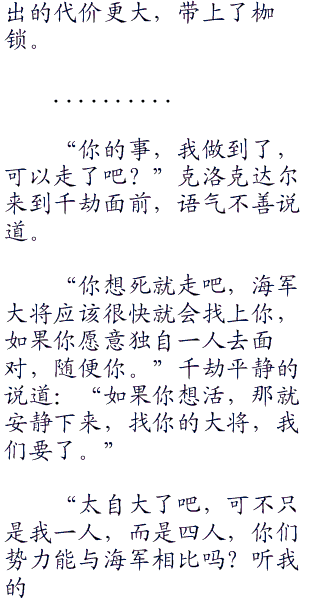 出的代价更大，带上了枷
锁。
..........
“你的事，我做到了，
可以走了吧？”克洛克达尔
来到千劫面前，语气不善说
道。
“你想死就走吧，海军
大将应该很快就会找上你，
如果你愿意独自一人去面
对，随便你。”千劫平静的
说道：“如果你想活，那就
安静下来，找你的大将，我
们要了。”
“太自大了吧，可不只
是我一人，而是四人，你们
势力能与海军相比吗？听我
的